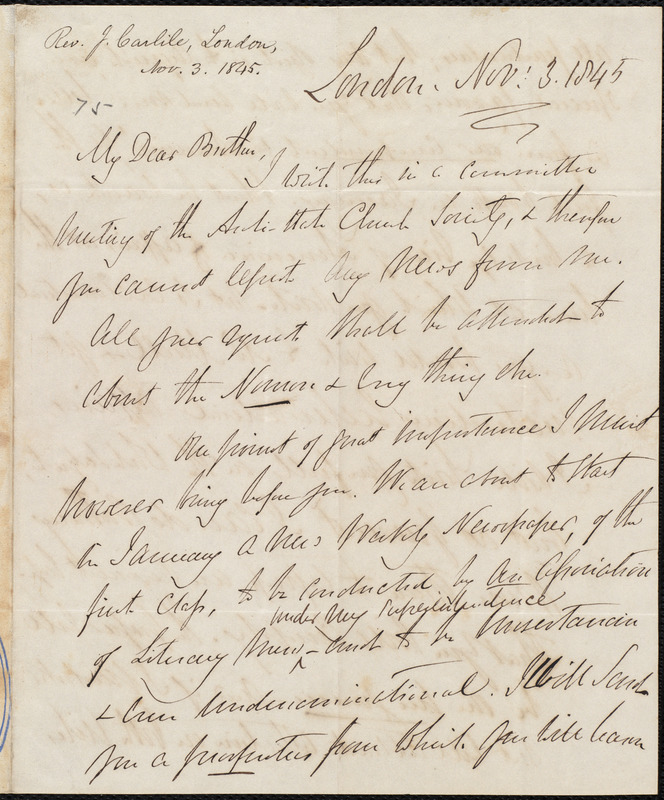 Rev. J. Carlile, London,
Nov. 3. 1845.
75
London. Nov: 3. 1845
My Dear Brother,
I write this in a committee
Meeting of the Anti-State Church Society, & therefore
you cannot expect any News from me.
All your requests shall be attended to
about the & every thing else.
One point of great importance I must
however bring before you. We are about to start
in January a New Weekly Newspaper, of the
first class, to be conducted by an Association
under my superintendence
of Literary Men, - and to be Unsectarian
& even Undenominational. I will Send
you a prospectus from which you will learn